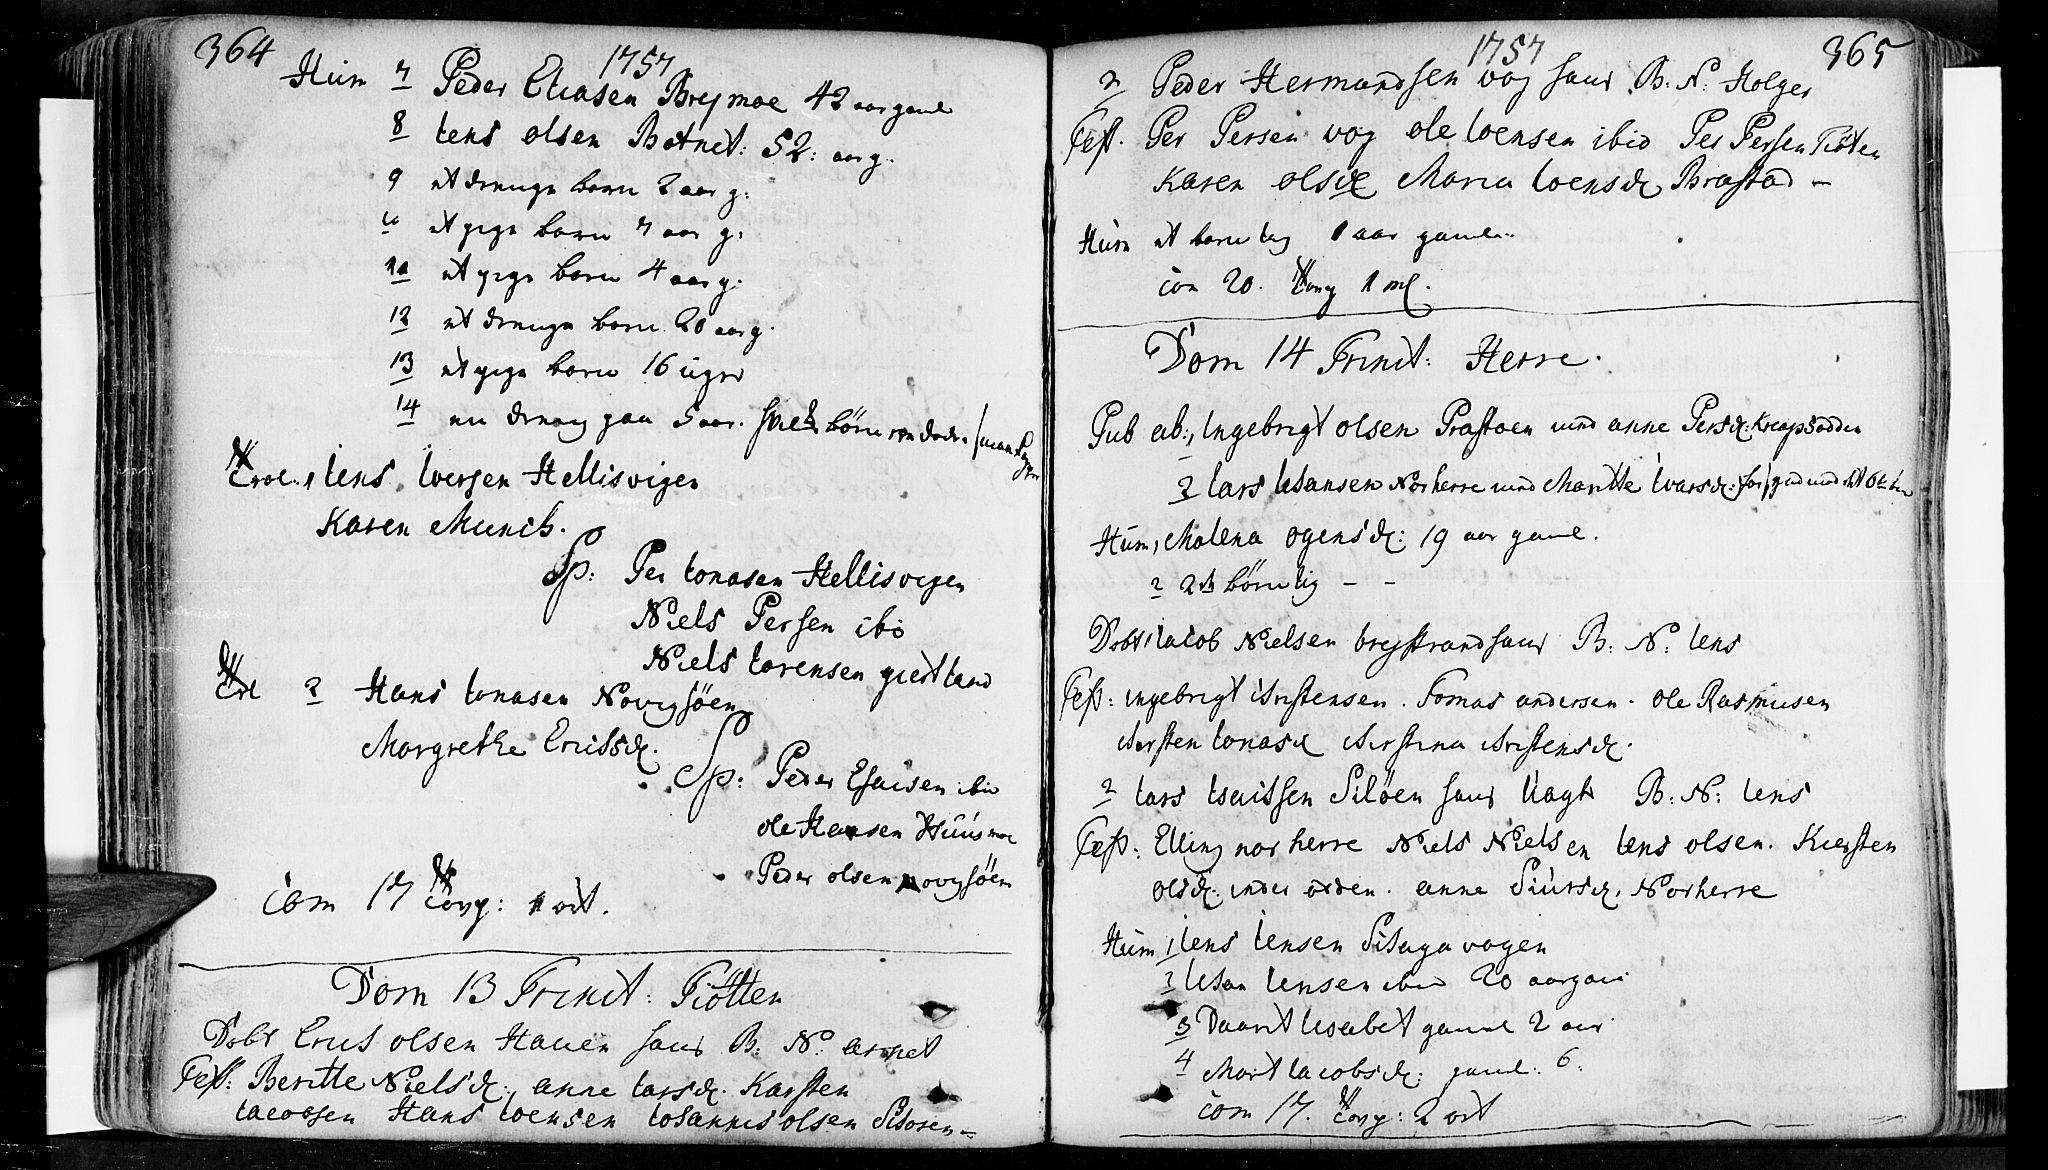 364
1757
Hum 7 Peder Eliasen Brejmoe 42 aar gaml
8 Jens olsen Botnet: 52: aar g.
9 et drenge barn 2 aar g:
10 et pige barn 7 aar g:
11 et pige barn 4 aar g.
12 et drenge barn 20 aar g.
13 et pige barn 16 uger
14 en dreng paa 5 aar. børn
1 Jens Iversen Hellisvigen
Karen Munch.
Sp: Per Jonasen Hellisvigen
Niels Persen ibi
Niels Larensen
2 Hans Jonasen Novigsöen
Margrethe Erichsd.
Sp: Peder Esaisen ibi
ole Hansen Huusmoe
Peder olsen Novigsöen
Com 17 Conf: 1 ort.
Dom 13 Trinit: Tiötten
Döbt olsen Hauen hans B: N:
Test: Beritte Nielsd: anne Larsd. Karsten
Jacobsen Hans Joensen Johannis olsen
1757
365
2 Peder Hermandsen vog hans B: N: Holger
Test. Per Persen vog ole Joensen ibid Per Persen Tiöten
Karen olsd Maren Joensd Brastad -
Hum et barn lig 1 aar gaml
Com 20. 1 ml.
Dom 14 Trinit: Herre.
Pub ab: 1 Ingebrigt olsen Prastöen med anne Persd:
2 Lars Johansen Norherre med Maritte Ivarsd:
Hum 1 Malena ogensd: 19 aar gaml.
2 2de börn lig - -
Döbt 1 Jacob Nielsen hans B: N: Jens
Test: ingebrigt Kristensen. Tomas andersen. Ole Rasmusen
Kirsten Jonasd Kirstina Kristensd.
2 Lars Isaissen Silöen hans B: N: Jens
Test: Elling nor herre Niels Nielsen Jens olsen. Kiersten
olsd. anne Siursd. Norherre
Hum 1 Jens Jensen
2 Johan Jensen ibid 20 aar gaml
3 Daarit Lisabet gaml 2 aar
4 Marit Jacobsd: gaml: 6:
Com 17. 2 ort